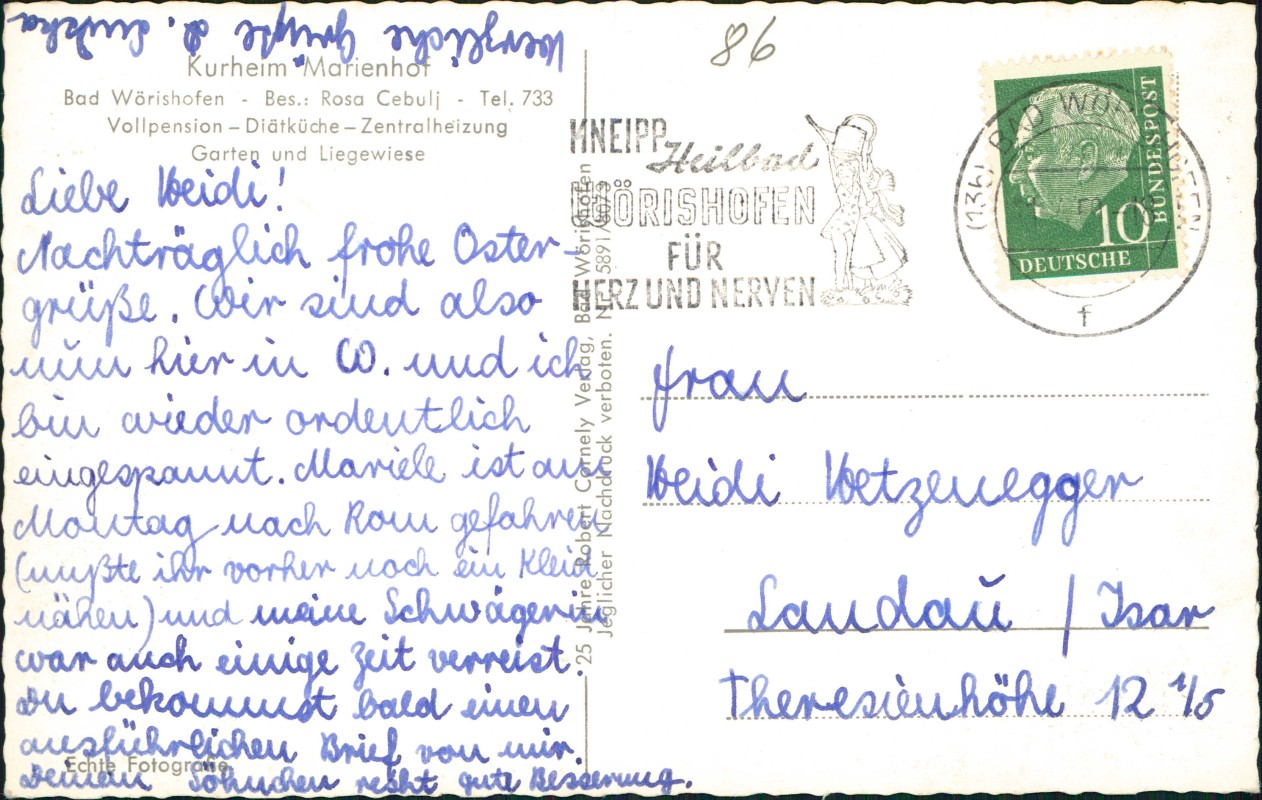 Kurheim "Marienhof"
Bad Wörishofen - Bes.: Rosa Cebulj - Tel. 733
Vollpension – Diätküche – Zentralheizung
Garten und Liegewiese
Liebe Heidi!
Nachträglich frohe Oster-
grüße. Wir sind also
nun hier in W. und ich
bin wieder ordentlich
eingespannt. Mariele ist am
Montag nach Rom gefahren
(mußte ihr vorher noch ein Kleid
nähen) und meine Schwägerin
war auch einige Zeit verreist.
Du bekommst bald einen
ausführlichen Brief von mir.
Deinem Söhnchen recht gute Besserung.
Herzliche Grüße d.
Echte Fotografie
25 Jahre Robert Cornely Verlag, Bad Wörishofen
Jeglicher Nachdruck verboten. Nr. 5891/8073
86
KNEIPP
Heilbad
WÖRISHOFEN
FÜR
HERZ UND NERVEN
(13b) BAD WÖRISHOFEN
f
10
DEUTSCHE
BUNDESPOST
Frau
Heidi Hetzenegger
Landau / Isar
Theresienhöhe 12 1/5